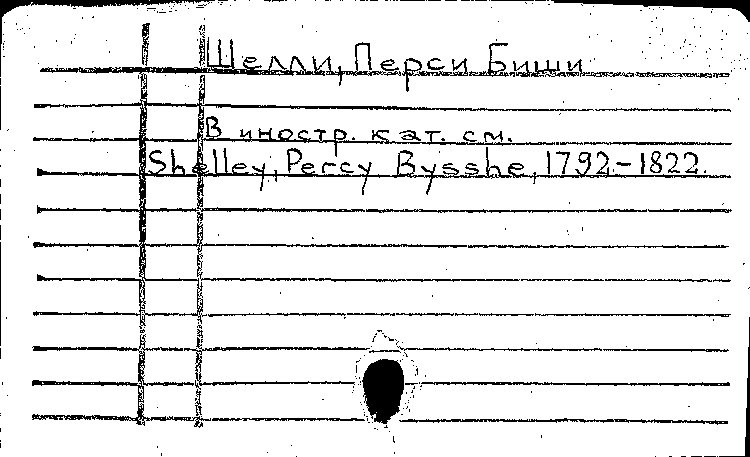 Шелли, Перси Биши
В иностр. кат. см.
Shelley, Percy Bysshe, 1792-1822.